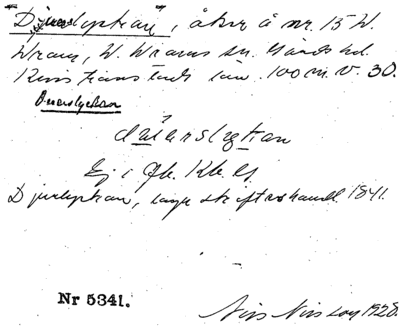 "Djurslyckan", åker å nr. 15 W.
Wram, W. Wrams sn. Gärds hd.
Kristianstads län. 100 m. v. 30.
Duerslyckan
dúərslykan
Ej i Gb. Kb. G
Djurlyckan, laga skifteshandl. 1841.
Nr 5341.
Nils Nilsson 1928.